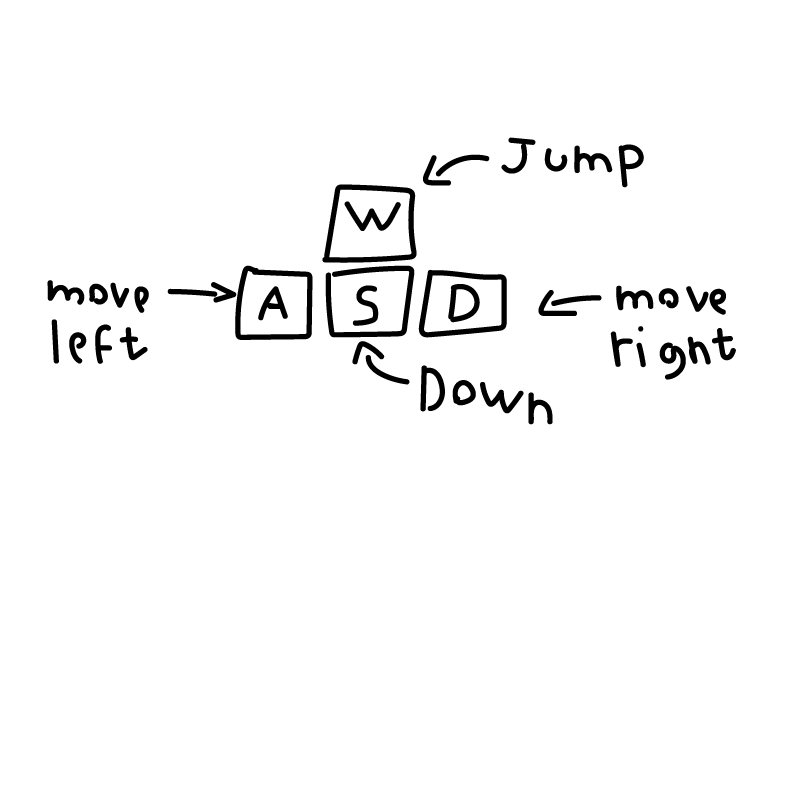 Jump
W
move
left
A
S
D
move
right
Down